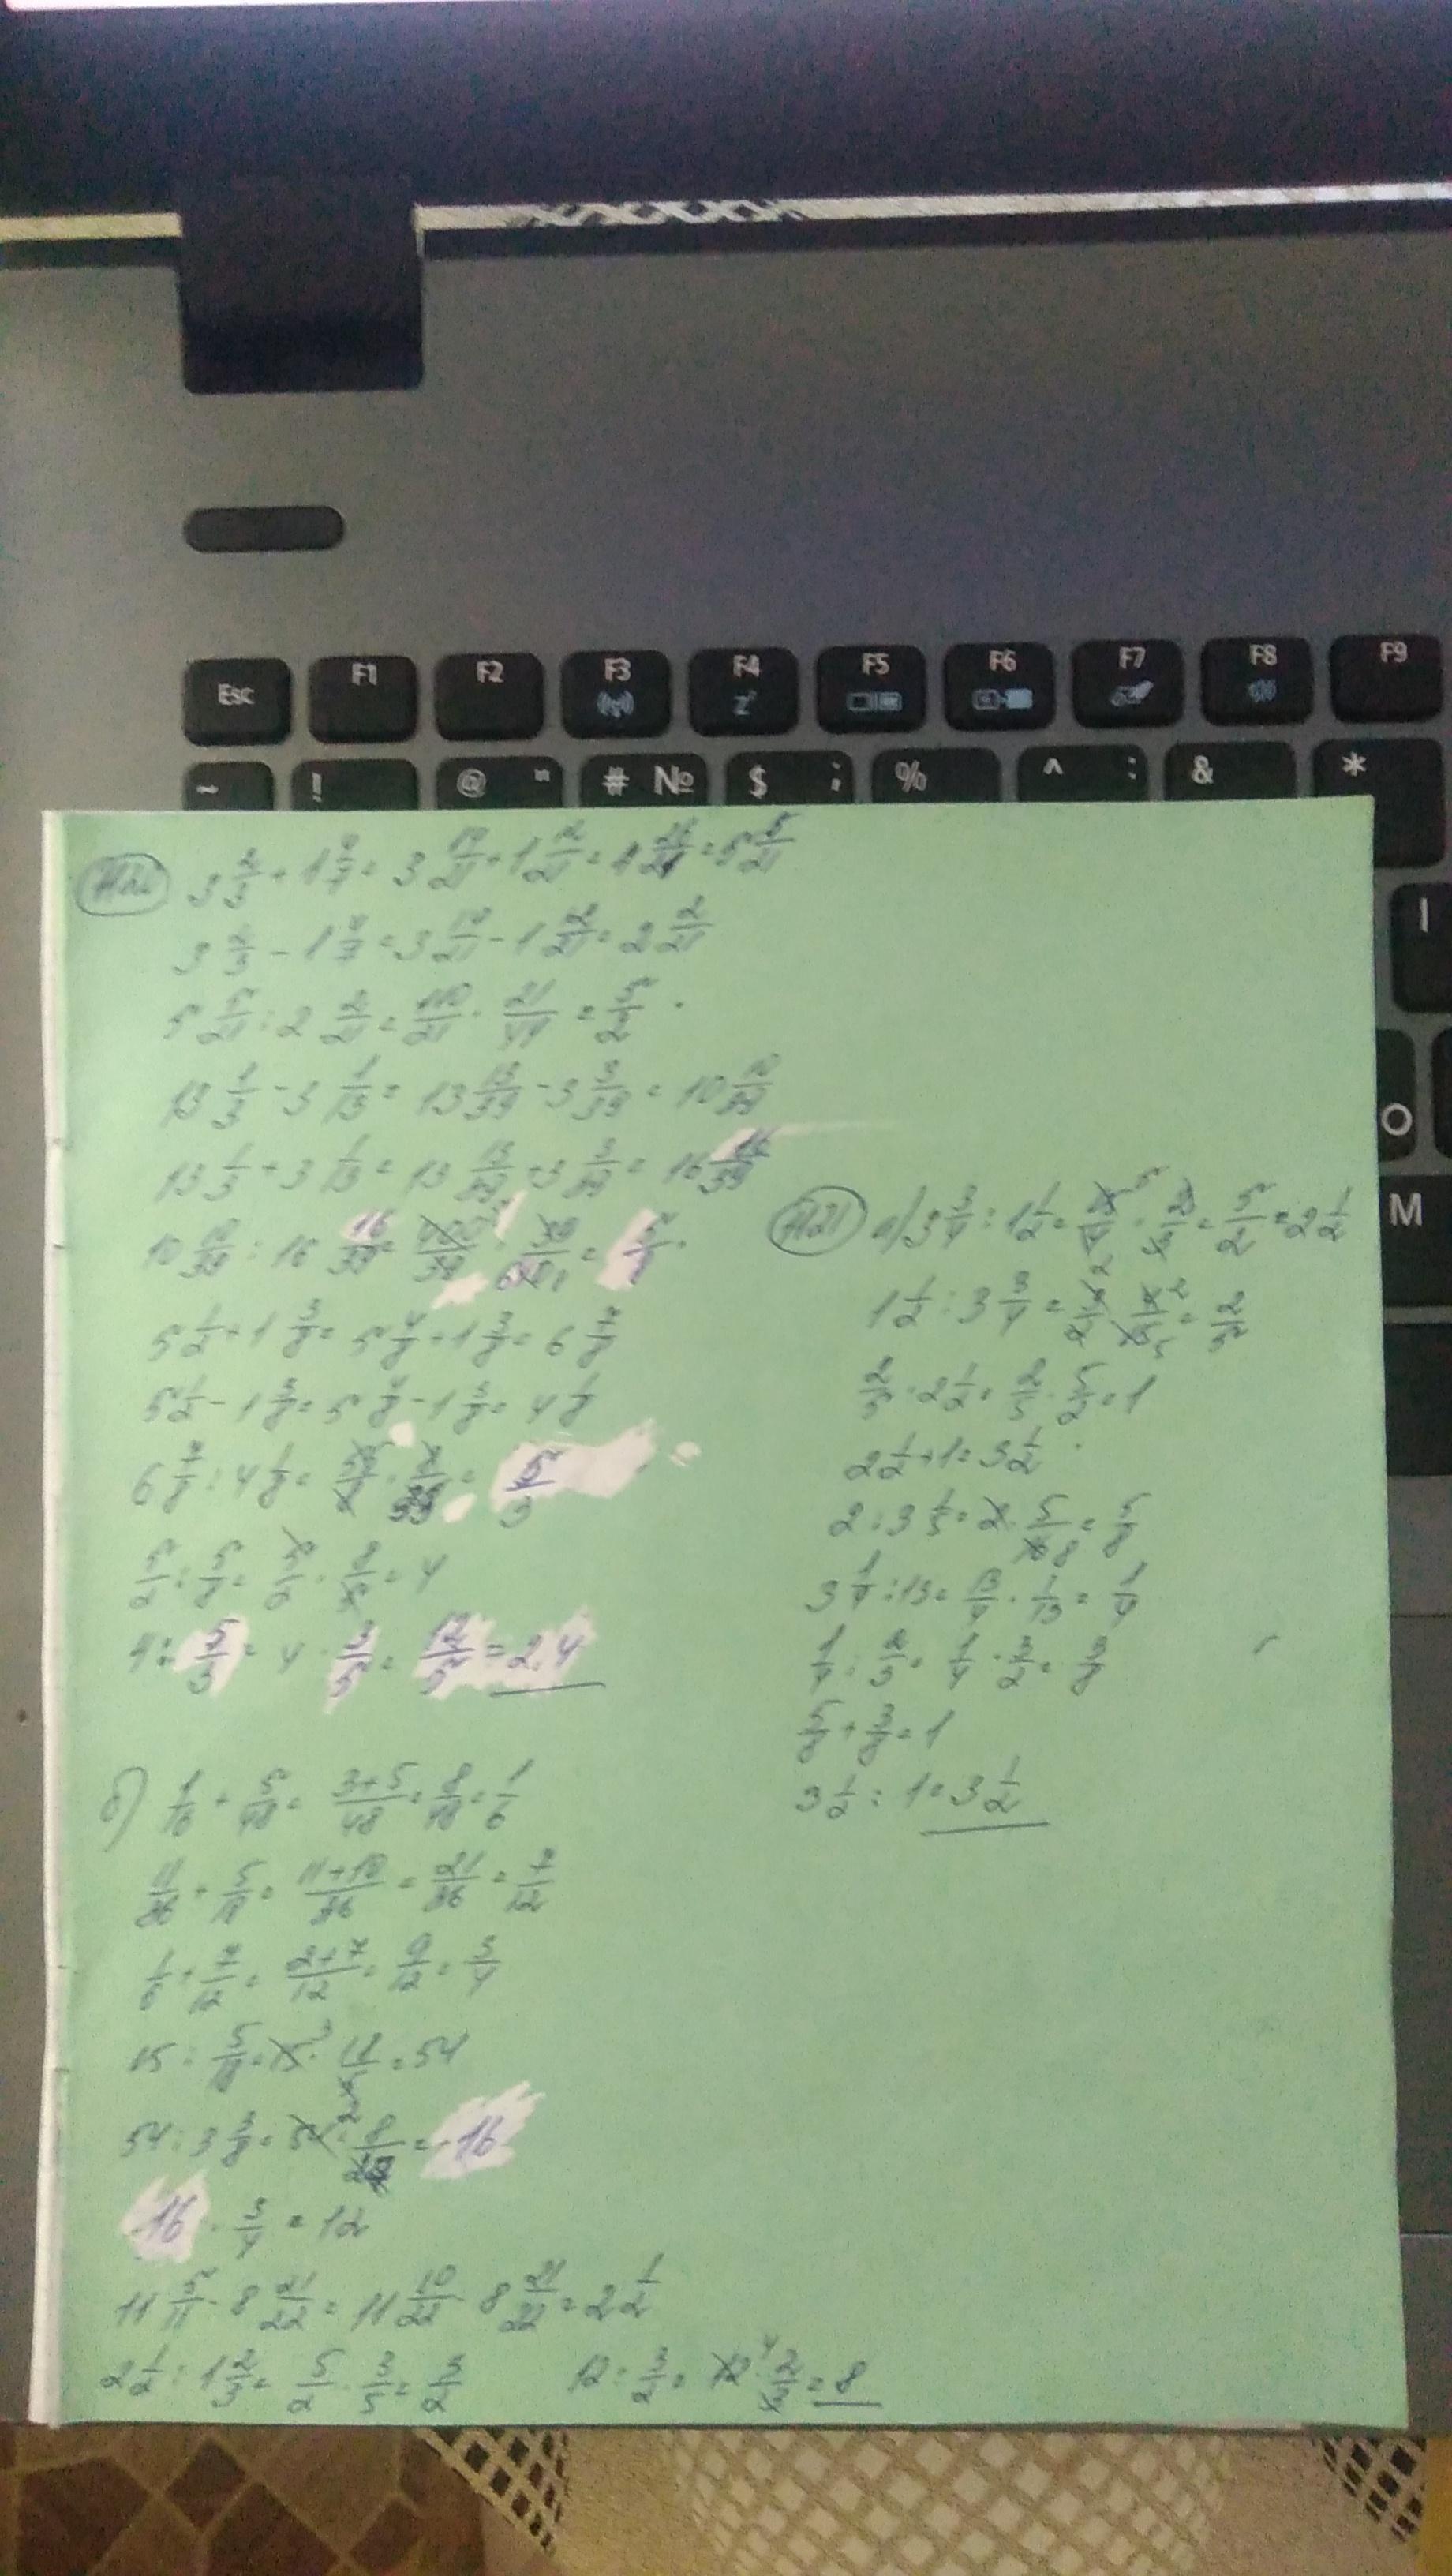 Esc F1 F2 F3 F4 F5 F6 F7 F8 F9
~ ! @ " # № $ ; % ^ : & *
I
O
M
3 2/3 + 1 4/7 = 3 14/21 + 1 12/21 = 4 26/21 = 5 5/21
3 2/3 - 1 4/7 = 3 14/21 - 1 12/21 = 2 2/21
5 5/21 : 2 2/21 = 110/21 · 21/44 = 5/2
13 1/3 - 3 1/13 = 13 13/39 - 3 3/39 = 10 10/39
13 1/3 + 3 1/13 = 13 13/39 + 3 3/39 = 16 16/39
10 10/39 : 16 16/39 = 400/39 · 39/640 = 5/8
5 1/2 + 1 3/8 = 5 4/8 + 1 3/8 = 6 7/8
5 1/2 - 1 3/8 = 5 4/8 - 1 3/8 = 4 1/8
6 7/8 : 4 1/8 = 55/8 · 8/33 = 5/3
5/2 : 5/8 = 5/2 · 8/5 = 4
4 : 5/3 = 4 · 3/5 = 12/5 = 2,4
б) 1/16 + 5/48 = 3+5/48 = 8/48 = 1/6
11/36 + 5/18 = 11+10/36 = 21/36 = 7/12
1/6 + 7/12 = 2+7/12 = 9/12 = 3/4
15 : 5/18 = 15 · 18/5 = 54
54 : 3 3/8 = 54 · 8/27 = 16
16 · 3/4 = 12
11 5/11 - 8 21/22 = 11 10/22 - 8 21/22 = 2 1/2
2 1/2 : 1 2/3 = 5/2 · 3/5 = 3/2
12 : 3/2 = 12 · 2/3 = 8
а) 3 3/4 : 1 1/2 = 15/4 · 2/3 = 5/2 = 2 1/2
1 1/2 : 3 3/4 = 3/2 · 4/15 = 2/5
2/5 · 2 1/2 = 2/5 · 5/2 = 1
2 1/2 + 1 = 3 1/2
2 : 3 1/5 = 2 · 5/16 = 5/8
3 1/4 : 13 = 13/4 · 1/13 = 1/4
1/4 : 2/3 = 1/4 · 3/2 = 3/8
5/8 + 3/8 = 1
3 1/2 : 1 = 3 1/2